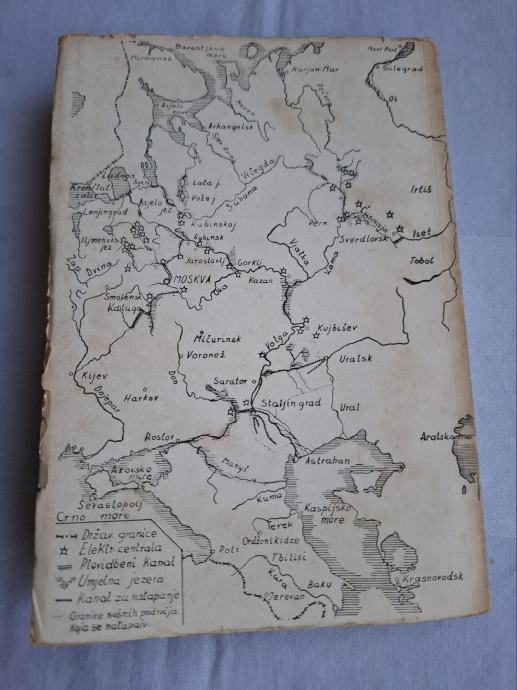 Barantjevo
more
Novi Port
Murmansk
Narjan-Mar
Salegrad
Ob
Bijelo
Arhangelsk
Vičegda
Irtiš
Ladoga
Lača j.
Vože j.
Suhona
Lenjingrad
Bijelo
jez
Kubinskoj
Perm
Iset
Sverdlovsk
Iljmensko
jez
Rybinsk
Vjatka
Kama
Tobol
Zap.
Dvina
Jaroslavlj
Gorkij
MOSKVA
Oka
Kazan
Smolensk
Kaluga
Mičurinsk
Volga
Kujbišev
Voronež
Uralsk
Kijev
Don
Saratov
Harkov
Dnjepar
Staljingrad
Ural
Aralsko more
Rostov
Astrahan
Azovsko
more
Manyš
Kuma
Sevastopolj
Crno more
Kaspijsko
more
Terek
Ordžonikidze
Držav. granice
Elektr. centrala
Plovidbeni Kanal
Umjetna jezera
Kanal za natapanje
Granice sušnih područja
Koja se natapaju
Poti
Tbilisi
Kura
Baku
Krasnovodsk
Jerevan